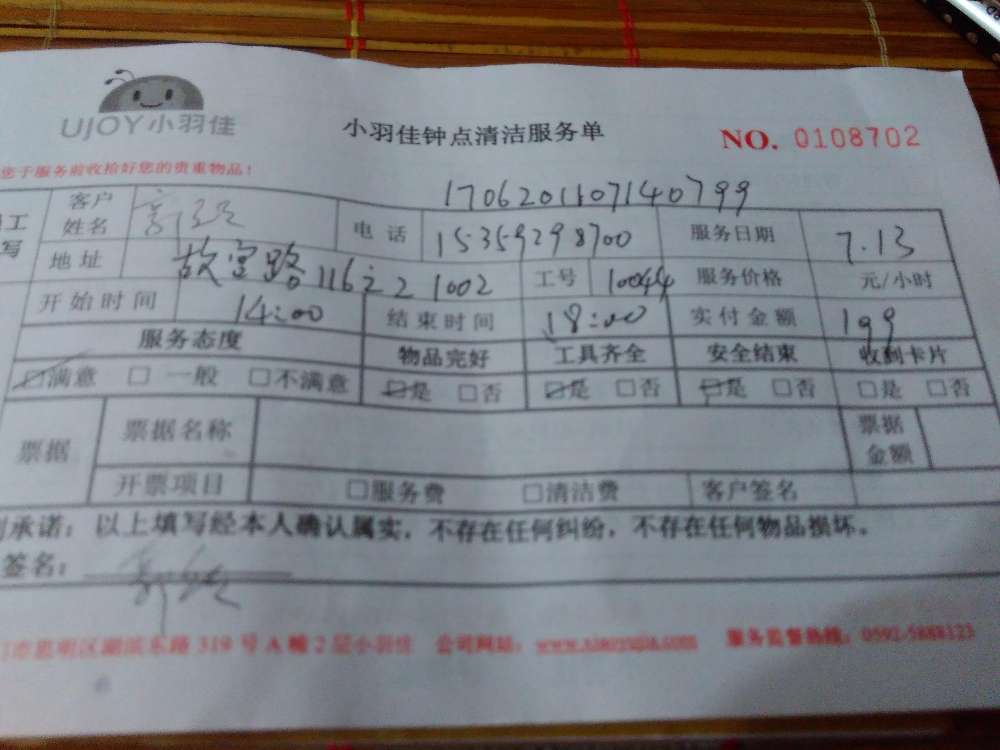 UJOY小羽佳
小羽佳钟点清洁服务单
NO. 0108702
您于服务前收拾好您的贵重物品!
17062011071400799
工
写
客户
姓名
电话
15359298700
服务日期
7.13
地址
故宫路116之2 1002
工号
10044
服务价格
元/小时
开始时间
14:00
结束时间
18:00
实付金额
199
服务态度
物品完好
工具齐全
安全结束
收到卡片
满意 □ 一般 □不满意
是 □否
是 □否
是 □否
□是 □否
票据
票据名称
票据
金额
开票项目
□服务费 □清洁费
客户签名
承诺:以上填写经本人确认属实,不存在任何纠纷,不存在任何物品损坏。
签名:
市思明区湖滨东路319号A幢2层小羽佳 公司网站: 服务监督热线:0592-5888123